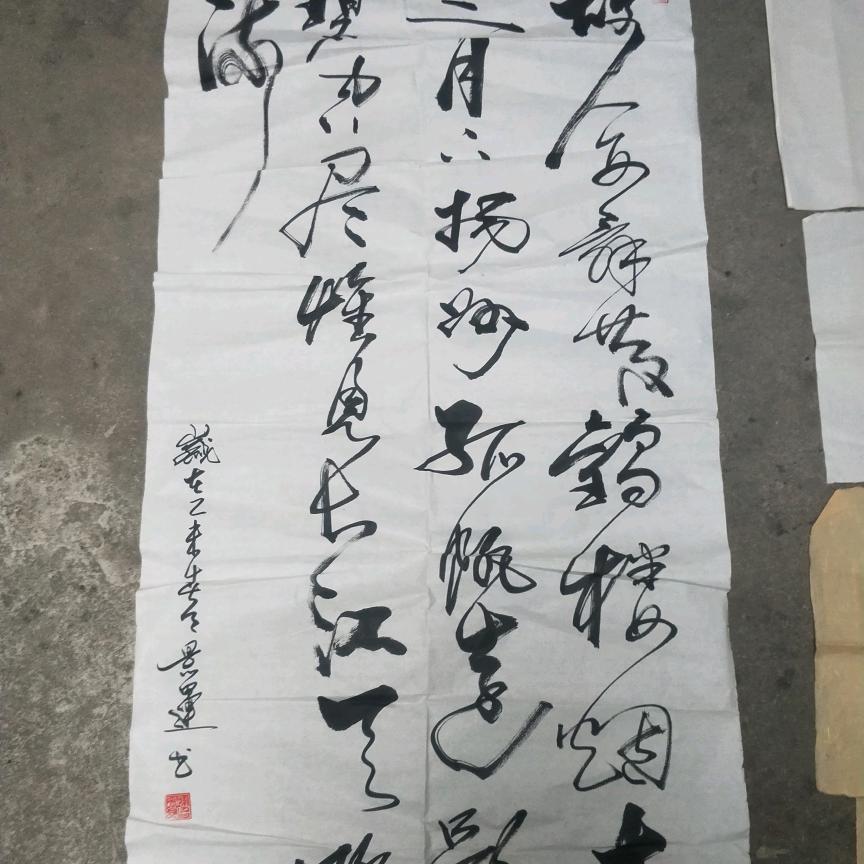 故人西辞黄鹤楼烟花
三月下扬州孤帆远影
碧空尽惟见长江天际
流
岁在乙未春月景运书